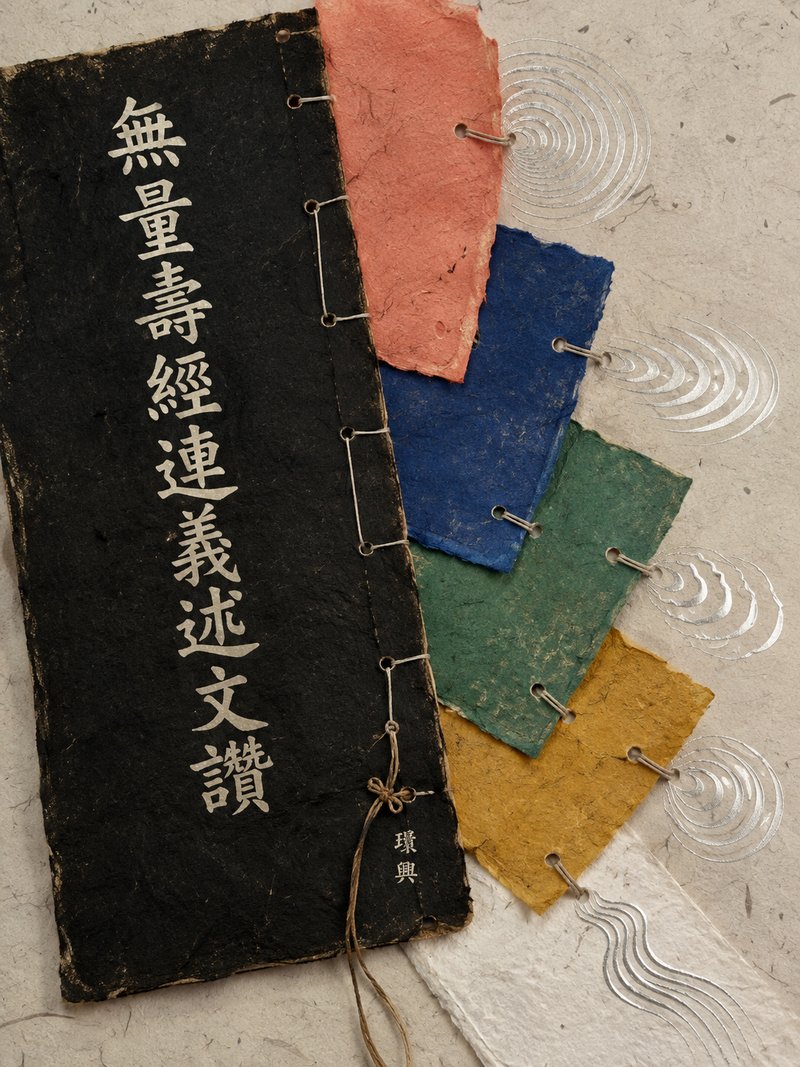 無量壽經連義述文讚
璟興